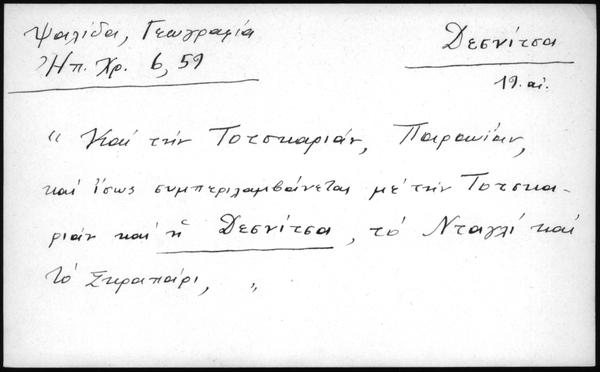 Ψαλίδα, Γεωγραφία
Ἠπ. Χρ. 6, 59
Δεσνίτσα
19. αἰ.
“ Καί τήν Τοτσκαριάν, Παρακίαν,
καί ἴσως συμπεριλαμβάνεται μέ τήν Τοτσκα-
ριάν καί ἡ Δεσνίτσα, τό Νταγλί καί
τό Σκραπάρι, „